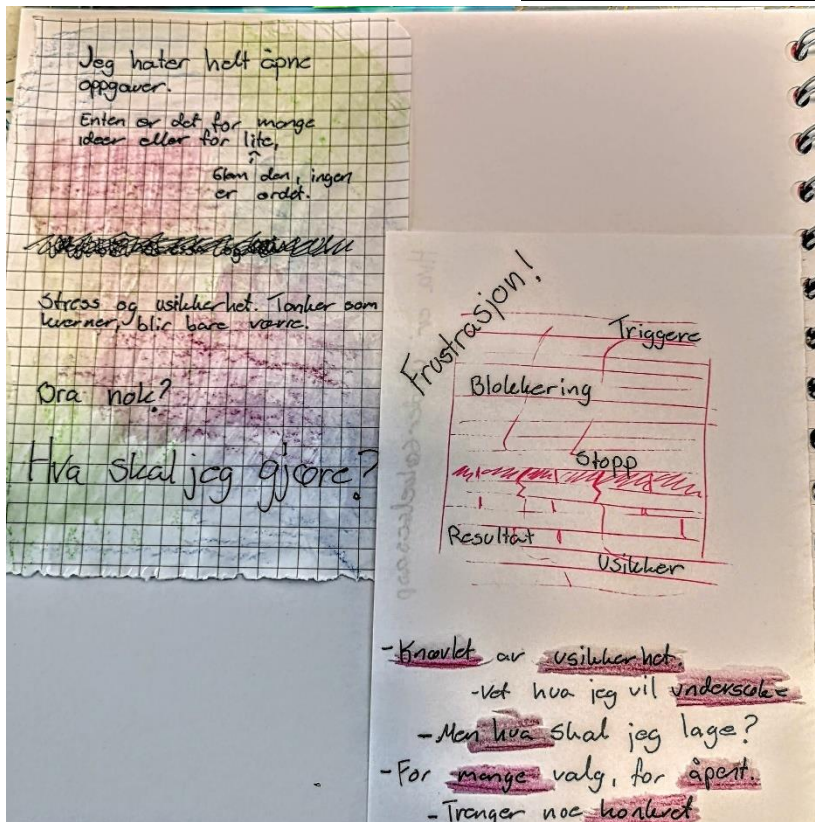 Jeg hater helt åpne
oppgaver.
Enten er det for mange
ideer eller for lite,
Glem den, ingen
er ordet.
Stress og usikkerhet. Tanker som
kverner, blir bare værre.
Bra nok?
Hva skal jeg gjøre?
Frustrasjon!
Triggere
Blokkering
Stopp
Resultat
Usikker
- Knøvlet av usikkerhet.
- Vet hva jeg vil undersøke
- Men hva skal jeg lage?
- For mange valg, for åpent.
- Trenger noe konkret